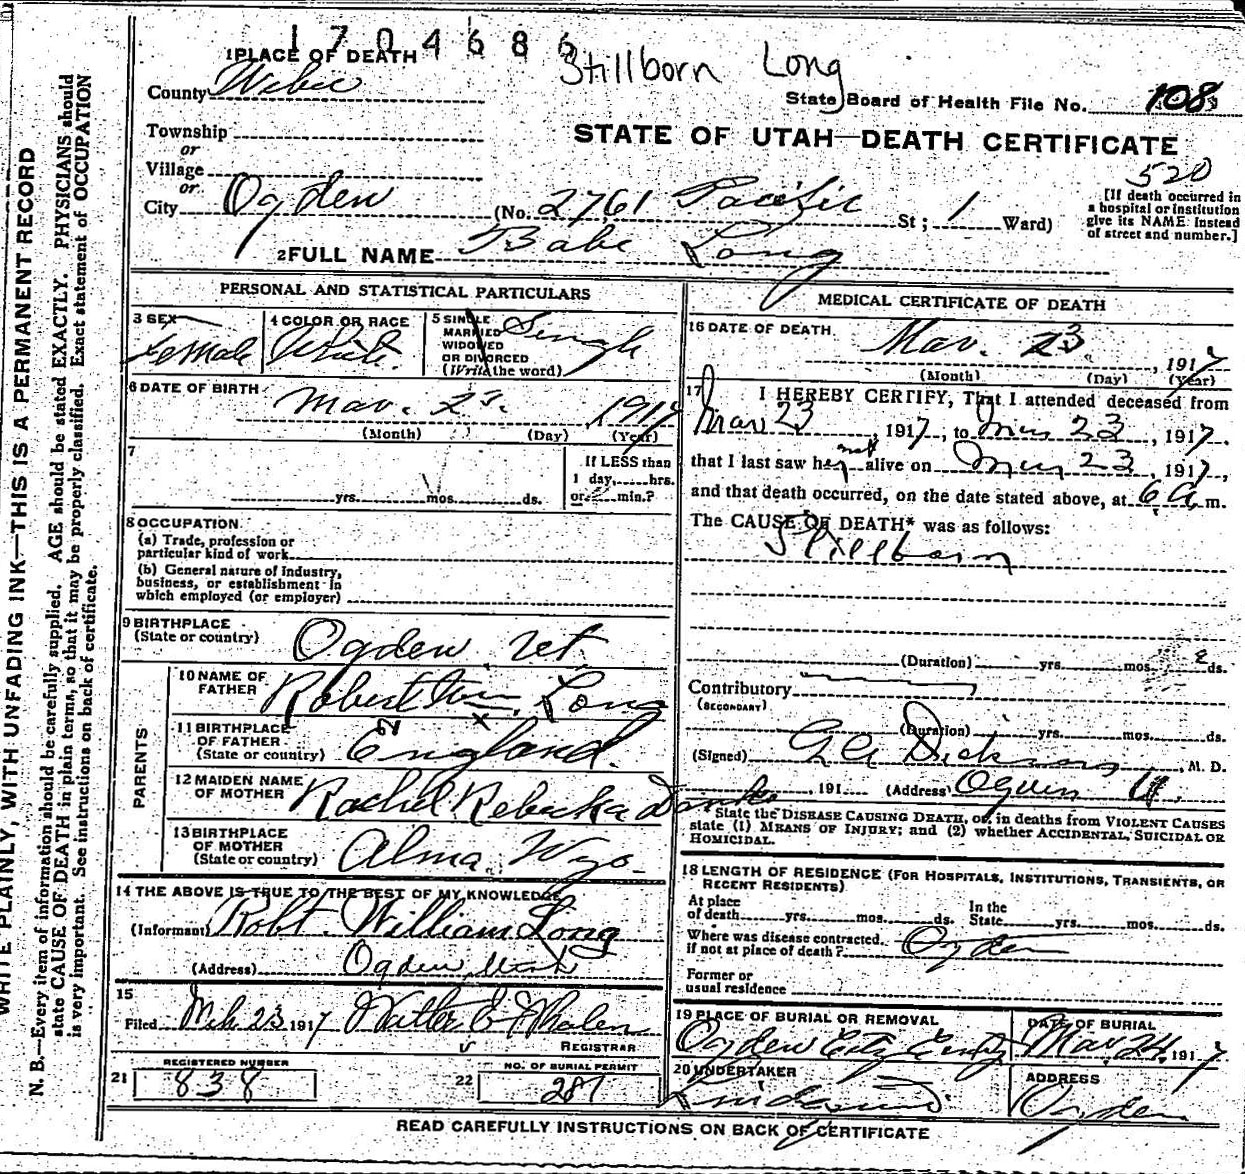 1704686
Stillborn Long
1 PLACE OF DEATH
County Weber
State Board of Health File No. 108
Township
or
Village
or
City Ogden
STATE OF UTAH—DEATH CERTIFICATE
520
(No. 2761 Pacific St; 1 Ward)
[If death occurred in
a hospital or institution
give its NAME instead
of street and number.]
2 FULL NAME Babe Long
PERSONAL AND STATISTICAL PARTICULARS
3 SEX
Female
4 COLOR OR RACE
White
5 SINGLE
MARRIED
WIDOWED
OR DIVORCED
(Write the word)
Single
6 DATE OF BIRTH
Mar. 23. 1917
(Month) (Day) (Year)
7
yrs. mos. ds.
If LESS than
1 day, hrs.
or min.?
8 OCCUPATION
(a) Trade, profession or
particular kind of work
(b) General nature of industry,
business, or establishment in
which employed (or employer)
9 BIRTHPLACE
(State or country)
Ogden Ut.
PARENTS
10 NAME OF
FATHER
Robert Wm. Long
11 BIRTHPLACE
OF FATHER
(State or country)
England.
12 MAIDEN NAME
OF MOTHER
Rachel Rebecka
13 BIRTHPLACE
OF MOTHER
(State or country)
Alma. Wyo.
14 THE ABOVE IS TRUE TO THE BEST OF MY KNOWLEDGE
(Informant) Robt. William Long
(Address) Ogden, Utah
15
Filed Mch 23 1917 Walter E Whalen
REGISTRAR
REGISTERED NUMBER
21 838
NO. OF BURIAL PERMIT
22 287
MEDICAL CERTIFICATE OF DEATH
16 DATE OF DEATH
Mar. 23, 1917
(Month) (Day) (Year)
17 I HEREBY CERTIFY, That I attended deceased from
Mar 23, 1917, to Mar 23, 1917,
that I last saw her not alive on Mar 23, 1917,
and that death occurred, on the date stated above, at 6 A. m.
The CAUSE OF DEATH* was as follows:
Stillborn
(Duration) yrs. mos. ds.
Contributory
(SECONDARY)
(Duration) yrs. mos. ds.
(Signed) , M. D.
, 191 (Address) Ogden U.
* State the DISEASE CAUSING DEATH, or, in deaths from VIOLENT CAUSES
state (1) MEANS OF INJURY; and (2) whether ACCIDENTAL, SUICIDAL OR
HOMICIDAL.
18 LENGTH OF RESIDENCE (FOR HOSPITALS, INSTITUTIONS, TRANSIENTS, OR
RECENT RESIDENTS)
At place
of death yrs. mos. ds.
In the
State yrs. mos. ds.
Where was disease contracted.
if not at place of death? Ogden
Former or
usual residence
19 PLACE OF BURIAL OR REMOVAL
Ogden City Cemty
DATE OF BURIAL
Mar. 24, 1917
20 UNDERTAKER
ADDRESS
Ogden
READ CAREFULLY INSTRUCTIONS ON BACK OF CERTIFICATE
WRITE PLAINLY, WITH UNFADING INK—THIS IS A PERMANENT RECORD
N. B.—Every item of information should be carefully supplied. AGE should be stated EXACTLY. PHYSICIANS should
state CAUSE OF DEATH in plain terms, so that it may be properly classified. Exact statement of OCCUPATION
is very important. See instructions on back of certificate.